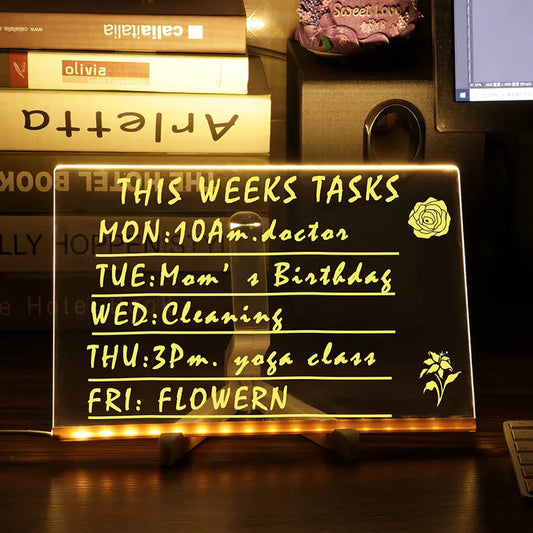 www.calliaitalia.com calliaitalia
olivia
Arletta
THE HOTEL BOOK
LLY HOPPEN STY
e Hote
Sweet Love
THIS WEEKS TASKS
MON:10Am.doctor
TUE:Mom's Birthdag
WED:Cleaning
THU:3Pm. yoga class
FRI: FLOWERN